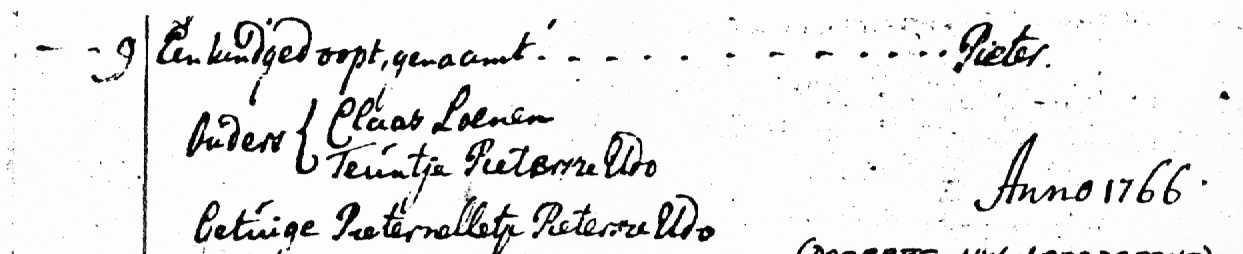 - - 9 Een kind gedoopt, genaamt. - - - - - - - - - - - Pieter.
Ouders { Claas Loenen
Teuntje Pieterse Udo
Anno 1766.
Getuige Pieternelletje Pieterse Udo